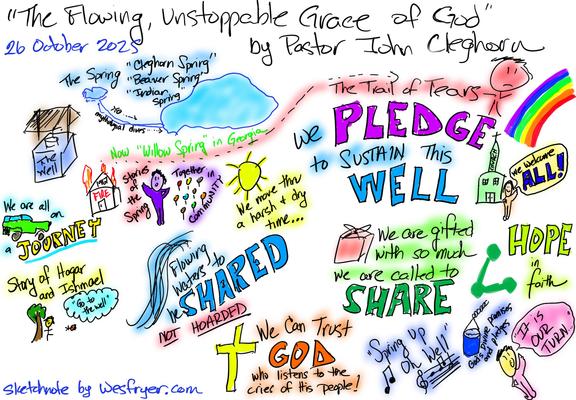 "The Flowing, Unstoppable Grace of God"
26 October 2025
by Pastor John Cleghorn
The Spring
"Cleghorn Spring"
"Beaver Spring"
"Indian
Spring"
The Trail of Tears
The
Well
Now "Willow Spring" in Georgia
we
PLEDGE
to SUSTAIN this
WELL
we welcome
ALL!
FIRE
stories
of the
Spring
Together
in
community
We move thru
a harsh + dry
time...
We are all
on
a JOURNEY
Story of Hagar
and Ishmael
Go to
the well!
Flowing
waters to
be SHARED
NOT HOARDED
We are gifted
with so much
we are called to
SHARE
HOPE
in
faith
We Can Trust
GOD
who listens to the
cries of His people!
"Spring up
Oh Well"
God's divine promises
and pledges
IT IS
OUR
TURN
sketchnote by wesfryer.com